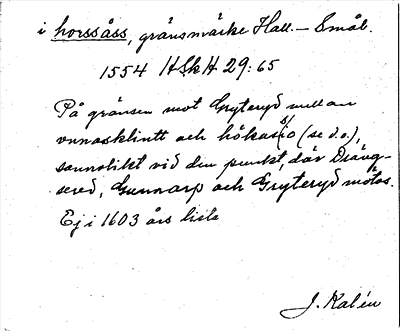 i horssåss, gränsmärke Hall. – Smål.
1554 HSkH 29:65
På gränsen mot Gryteryd mellan
vnnasklintt och hökasiö (se d.o.),
sannolikt vid den punkt, där Dräng-
sered, Gunnarp och Gryteryd mötas.
Ej i 1603 års lista
J. Kalén